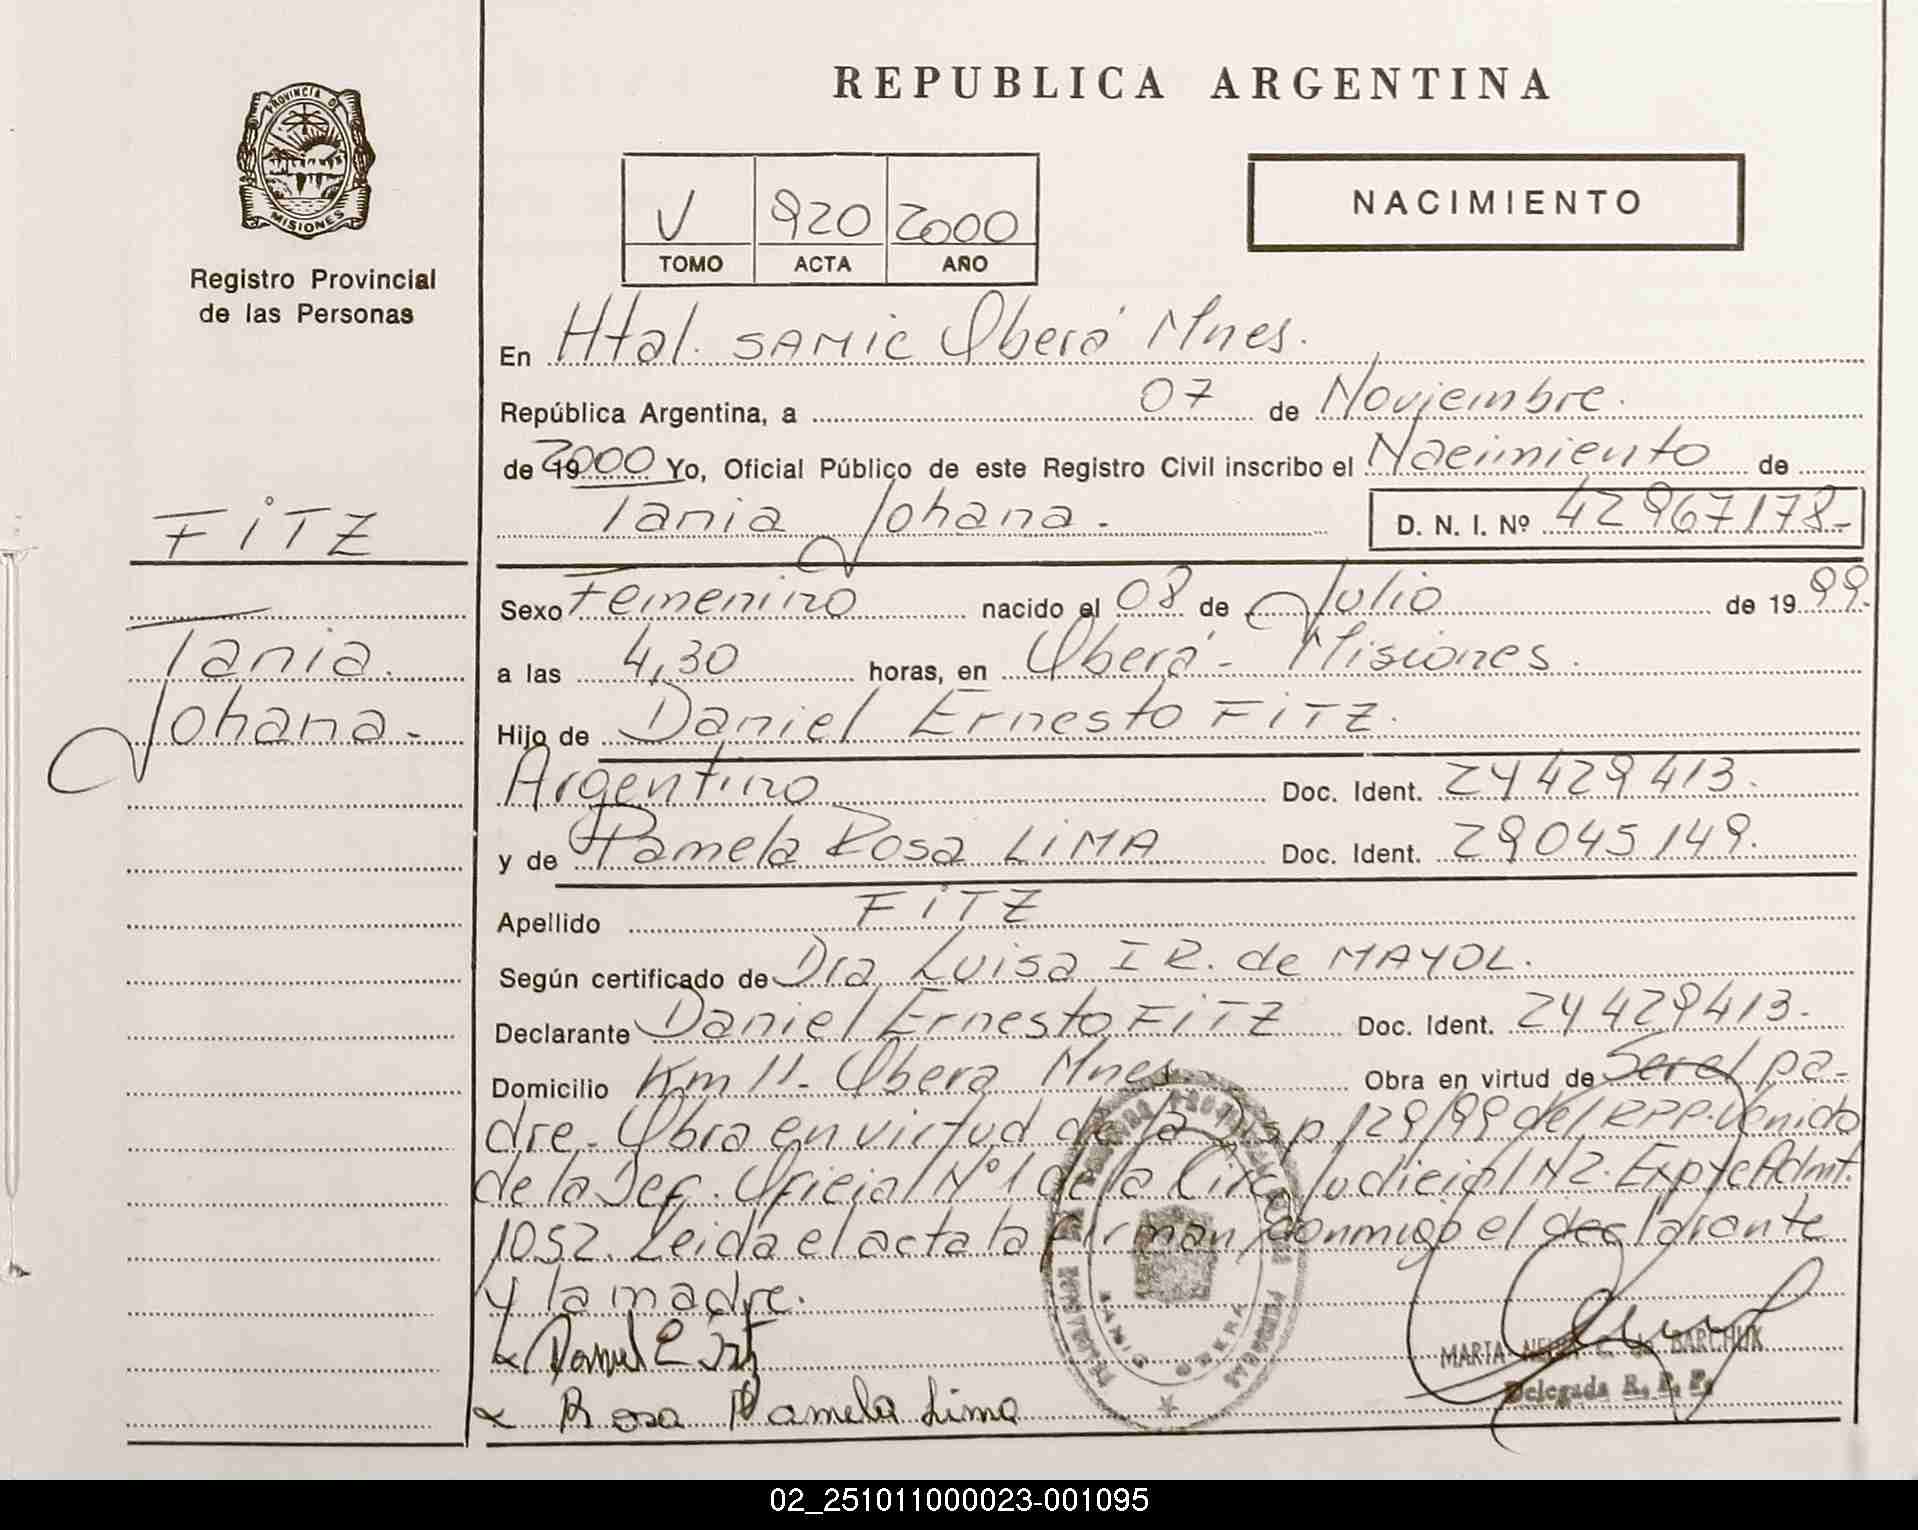 REPUBLICA ARGENTINA
PROVINCIA D
MISIONES
Registro Provincial
de las Personas
V 920 2000
TOMO ACTA AÑO
NACIMIENTO
En Htal. SAMIC Oberá Mnes.
República Argentina, a 07 de Noviembre.
de 2000 Yo, Oficial Público de este Registro Civil inscribo el Nacimiento de
Tania Johana.-
D. N. I. Nº 42967178-
FiTZ
Tania.
Johana.-
Sexo Femenino nacido el 08 de Julio de 1999.
a las 4,30 horas, en Oberá - Misiones.
Hijo de Daniel Ernesto FiTZ.
Argentino Doc. Ident. 24429413.
y de Pamela Rosa LiMA Doc. Ident. 29045149.
Apellido FiTZ
Según certificado de Dra Luisa I R. de MAYOL.
Declarante Daniel Ernesto FiTZ Doc. Ident. 24429413.
Domicilio Km 11- Obera Mnes. Obra en virtud de Ser el pa-
dre.- Obra en virtud de la Disp 129/99 del RPP. Venido
de la Def. Oficial Nº 1 de la Circ Judicial N2. Expte Admt.
1052. Leida el acta la firman conmigo el declarante
y la madre.
Daniel E Fitz
Rosa Pamela Lima
MARIA C. de BARCHUK
Delegada R. P. P.
OBERA
02_251011000023-001095